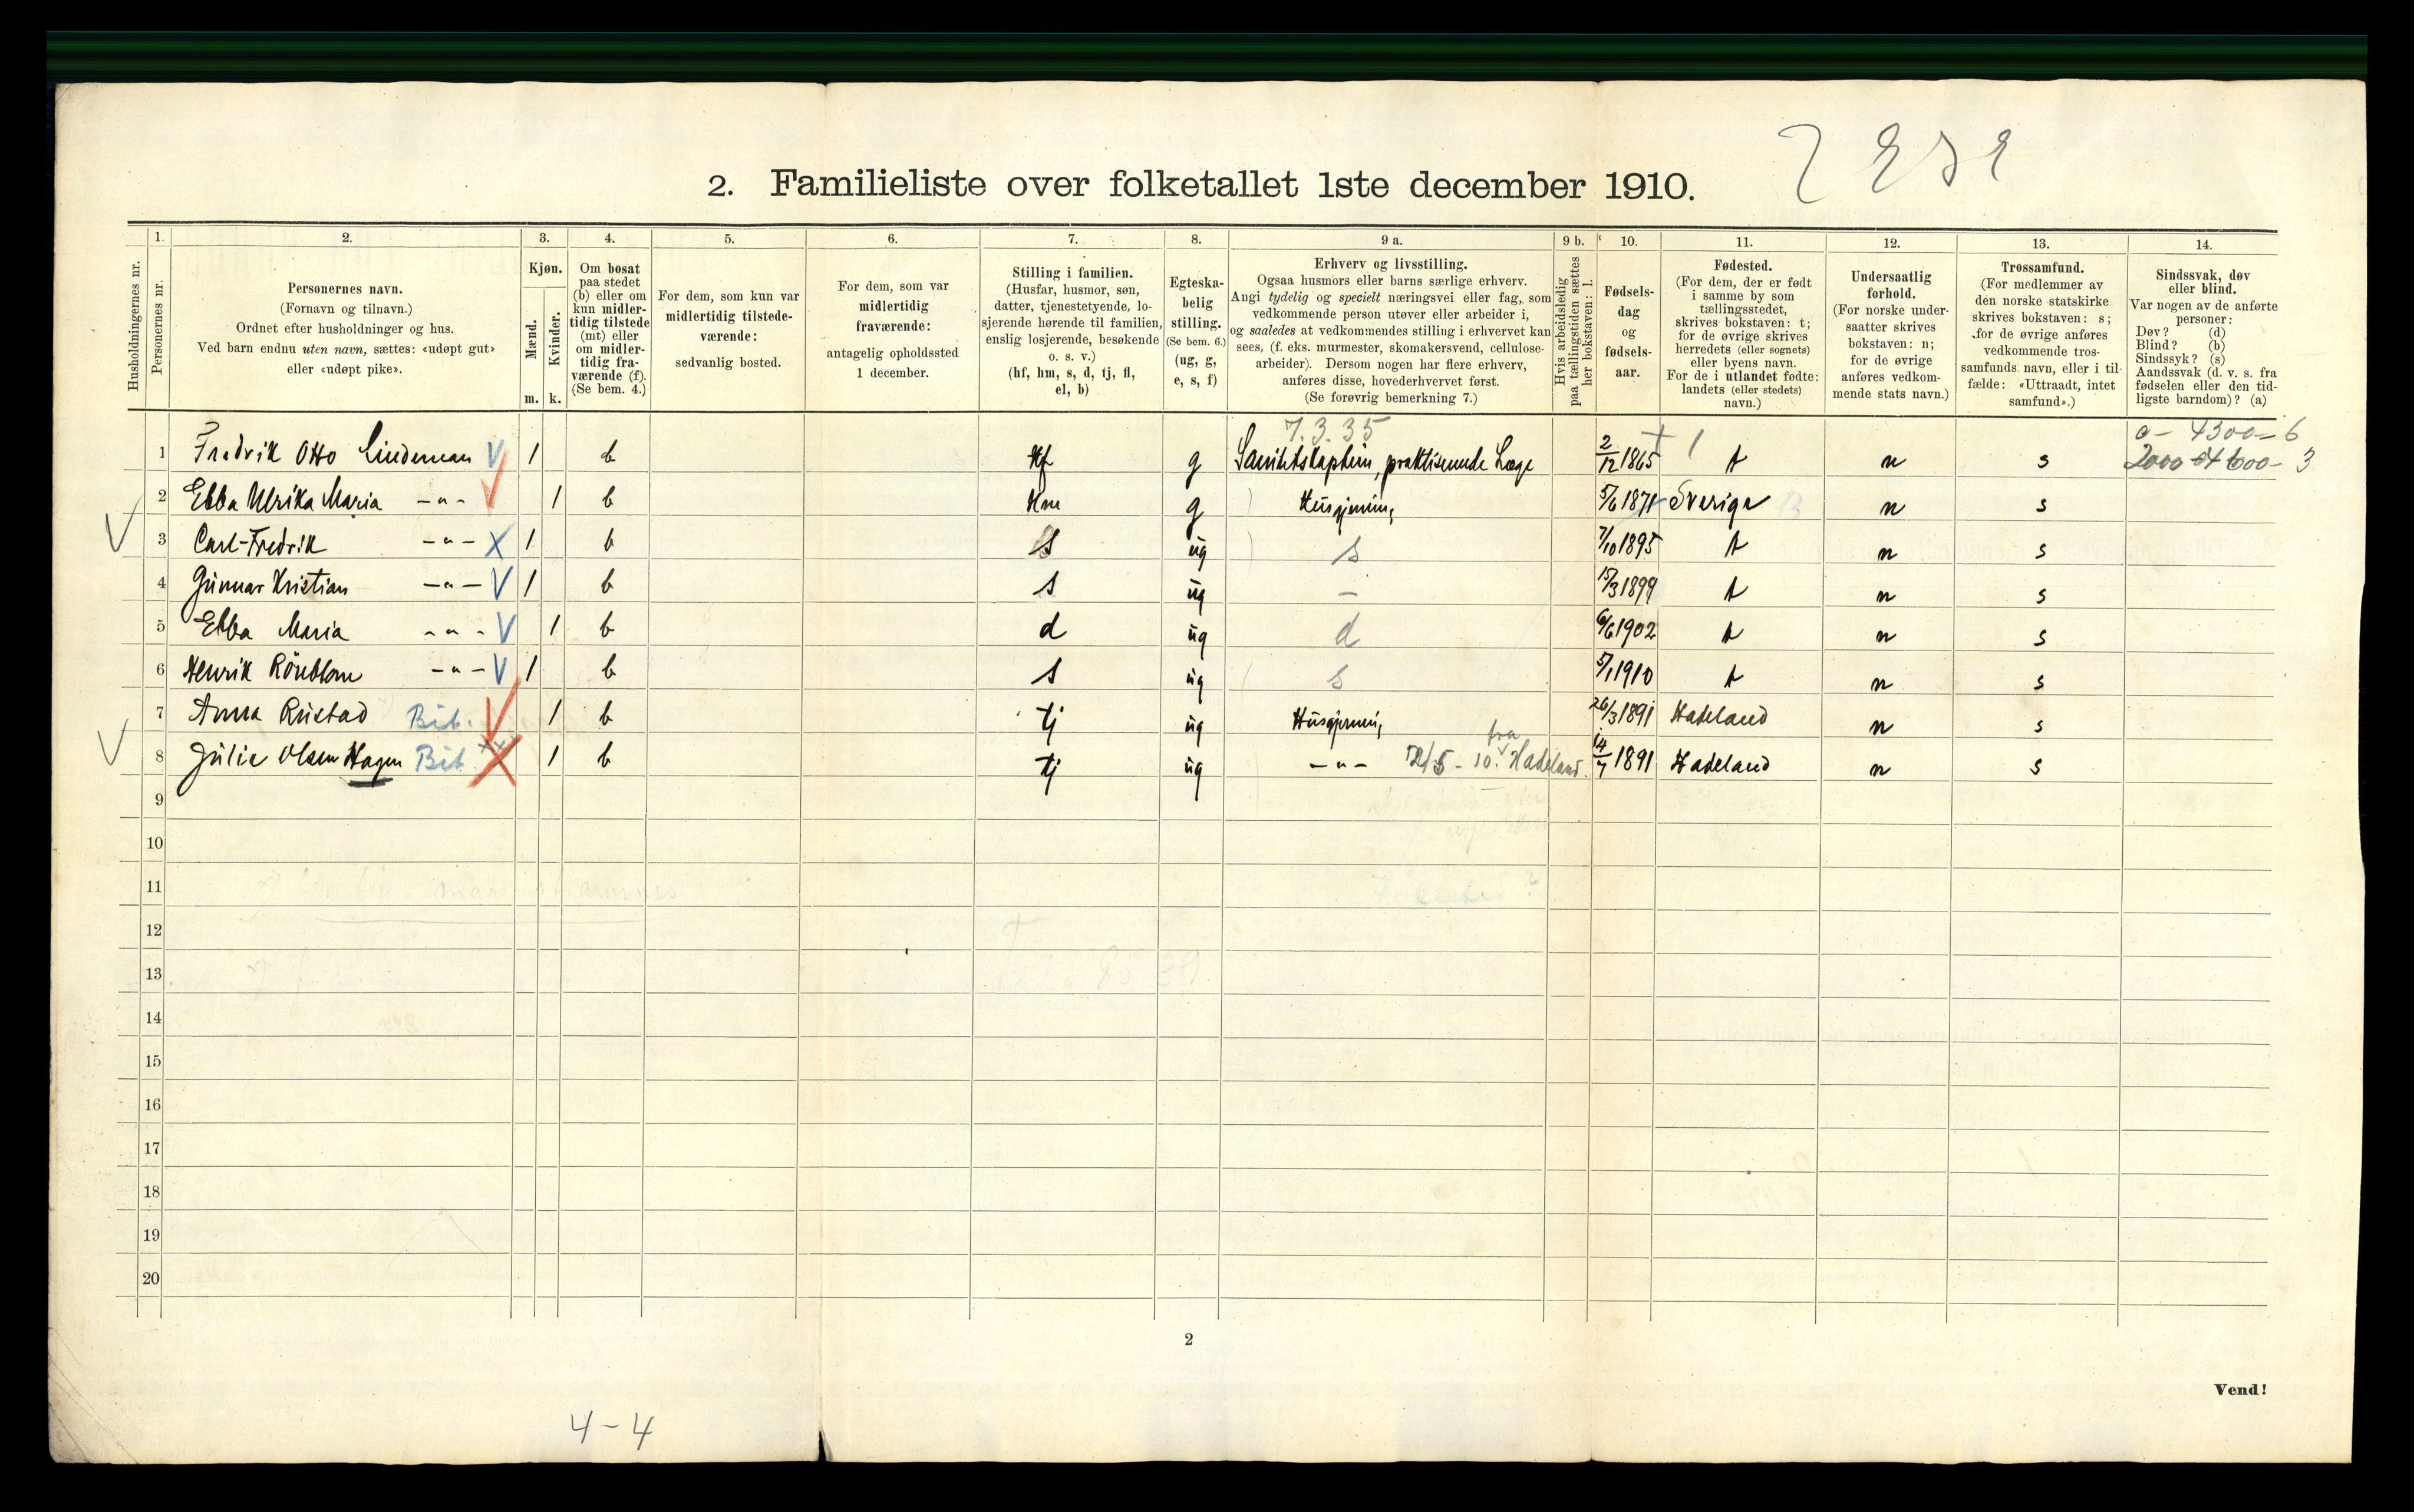 2. Familieliste over folketallet 1ste december 1910.
Husholdningernes nr.
1. Personernes nr.
2. Personernes navn.
(Fornavn og tilnavn.)
Ordnet efter husholdninger og hus.
Ved barn endnu uten navn, sættes: «udøpt gut»
eller «udøpt pike».
3. Kjøn.
Mænd. m.
Kvinder. k.
4. Om bosat
paa stedet
(b) eller om
kun midler-
tidig tilstede
(mt) eller
om midler-
tidig fra-
værende (f).
(Se bem. 4.)
5. For dem, som kun var
midlertidig tilstede-
værende:
sedvanlig bosted.
6. For dem, som var
midlertidig
fraværende:
antagelig opholdssted
1 december.
7. Stilling i familien.
(Husfar, husmor, søn,
datter, tjenestetyende, lo-
sjerende hørende til familien,
enslig losjerende, besøkende
o. s. v.)
(hf, hm, s, d, tj, fl,
el, b)
8. Egteska-
belig
stilling.
(Se bem. 6.)
(ug, g,
e, s, f)
9 a. Erhverv og livsstilling.
Ogsaa husmors eller barns særlige erhverv.
Angi tydelig og specielt næringsvei eller fag, som
vedkommende person utøver eller arbeider i,
og saaledes at vedkommendes stilling i erhvervet kan
sees, (f. eks. murmester, skomakersvend, cellulose-
arbeider). Dersom nogen har flere erhverv,
anføres disse, hovederhvervet først.
(Se forøvrig bemerkning 7.)
9 b. Hvis arbeidsledig
paa tællingstiden sættes
her bokstaven: l.
10. Fødsels-
dag
og
fødsels-
aar.
11. Fødested.
(For dem, der er født
i samme by som
tællingsstedet,
skrives bokstaven: t;
for de øvrige skrives
herredets (eller sognets)
eller byens navn.
For de i utlandet fødte:
landets (eller stedets)
navn.)
12. Undersaatlig
forhold.
(For norske under-
saatter skrives
bokstaven: n;
for de øvrige
anføres vedkom-
mende stats navn.)
13. Trossamfund.
(For medlemmer av
den norske statskirke
skrives bokstaven: s;
for de øvrige anføres
vedkommende tros-
samfunds navn, eller i til-
fælde: «Uttraadt, intet
samfund».)
14. Sindssvak, døv
eller blind.
Var nogen av de anførte
personer:
Døv? (d)
Blind? (b)
Sindssyk? (s)
Aandssvak (d. v. s. fra
fødselen eller den tid-
ligste barndom)? (a)
7.3.35
0 - 4300 - 6
1 Fredrik Otto Lindeman V 1 b Hf g Sanitetskaptein, praktiserende Læge 2/12 1865 t n s
2 Ebba Ulrika Maria -"- 1 b Hm g Husgjerning 5/6 1871 Sverige n s
3 Carl-Fredrik -"- X 1 b s ug s 7/10 1895 t n s
4 Gunnar Kristian -"- V 1 b s ug - 15/3 1899 t n s
5 Ebba Maria -"- V 1 b d ug d 6/6 1902 t n s
6 Henrik Rönblom -"- V 1 b s ug s 5/1 1910 t n s
7 Anna Rustad Bib. 1 b tj ug Husgjerning 26/3 1891 Hadeland n s
8 Julie Olsen Hagen Bib. 1 b tj ug -"- 12/5-10. fra Hadeland. 14/7 1891 Hadeland n s
9
10
11
12
13
14
15
16
17
18
19
20
2
Vend!
4-4